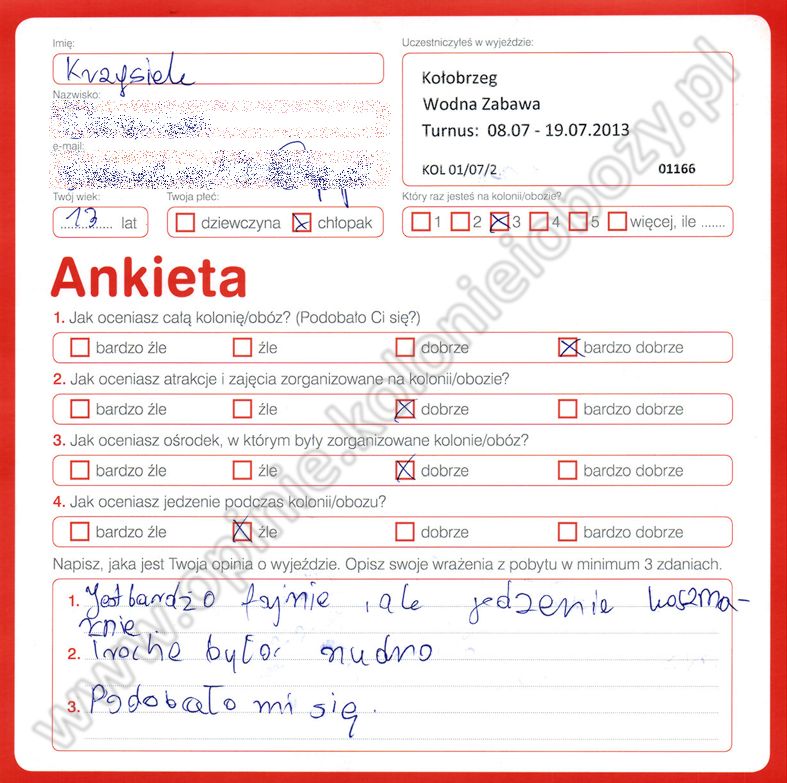 Imię:
Uczestniczyłeś w wyjeździe:
Krzysiek
Kołobrzeg
Nazwisko:
Wodna Zabawa
Turnus: 08.07 - 19.07.2013
e-mail:
KOL 01/07/2 01166
Twój wiek: Twoja płeć: Który raz jesteś na kolonii/obozie?
13 lat dziewczyna chłopak 1 2 3 4 5 więcej, ile .......
Ankieta
1. Jak oceniasz całą kolonię/obóz? (Podobało Ci się?)
bardzo źle źle dobrze bardzo dobrze
2. Jak oceniasz atrakcje i zajęcia zorganizowane na kolonii/obozie?
bardzo źle źle dobrze bardzo dobrze
3. Jak oceniasz ośrodek, w którym były zorganizowane kolonie/obóz?
bardzo źle źle dobrze bardzo dobrze
4. Jak oceniasz jedzenie podczas kolonii/obozu?
bardzo źle źle dobrze bardzo dobrze
Napisz, jaka jest Twoja opinia o wyjeździe. Opisz swoje wrażenia z pobytu w minimum 3 zdaniach.
1. Jest bardzo fajnie , ale jedzenie koszma-
rnie.
2. Troche było nudno
3. Podobało mi się.
www.opinie.kolonieiobozy.pl